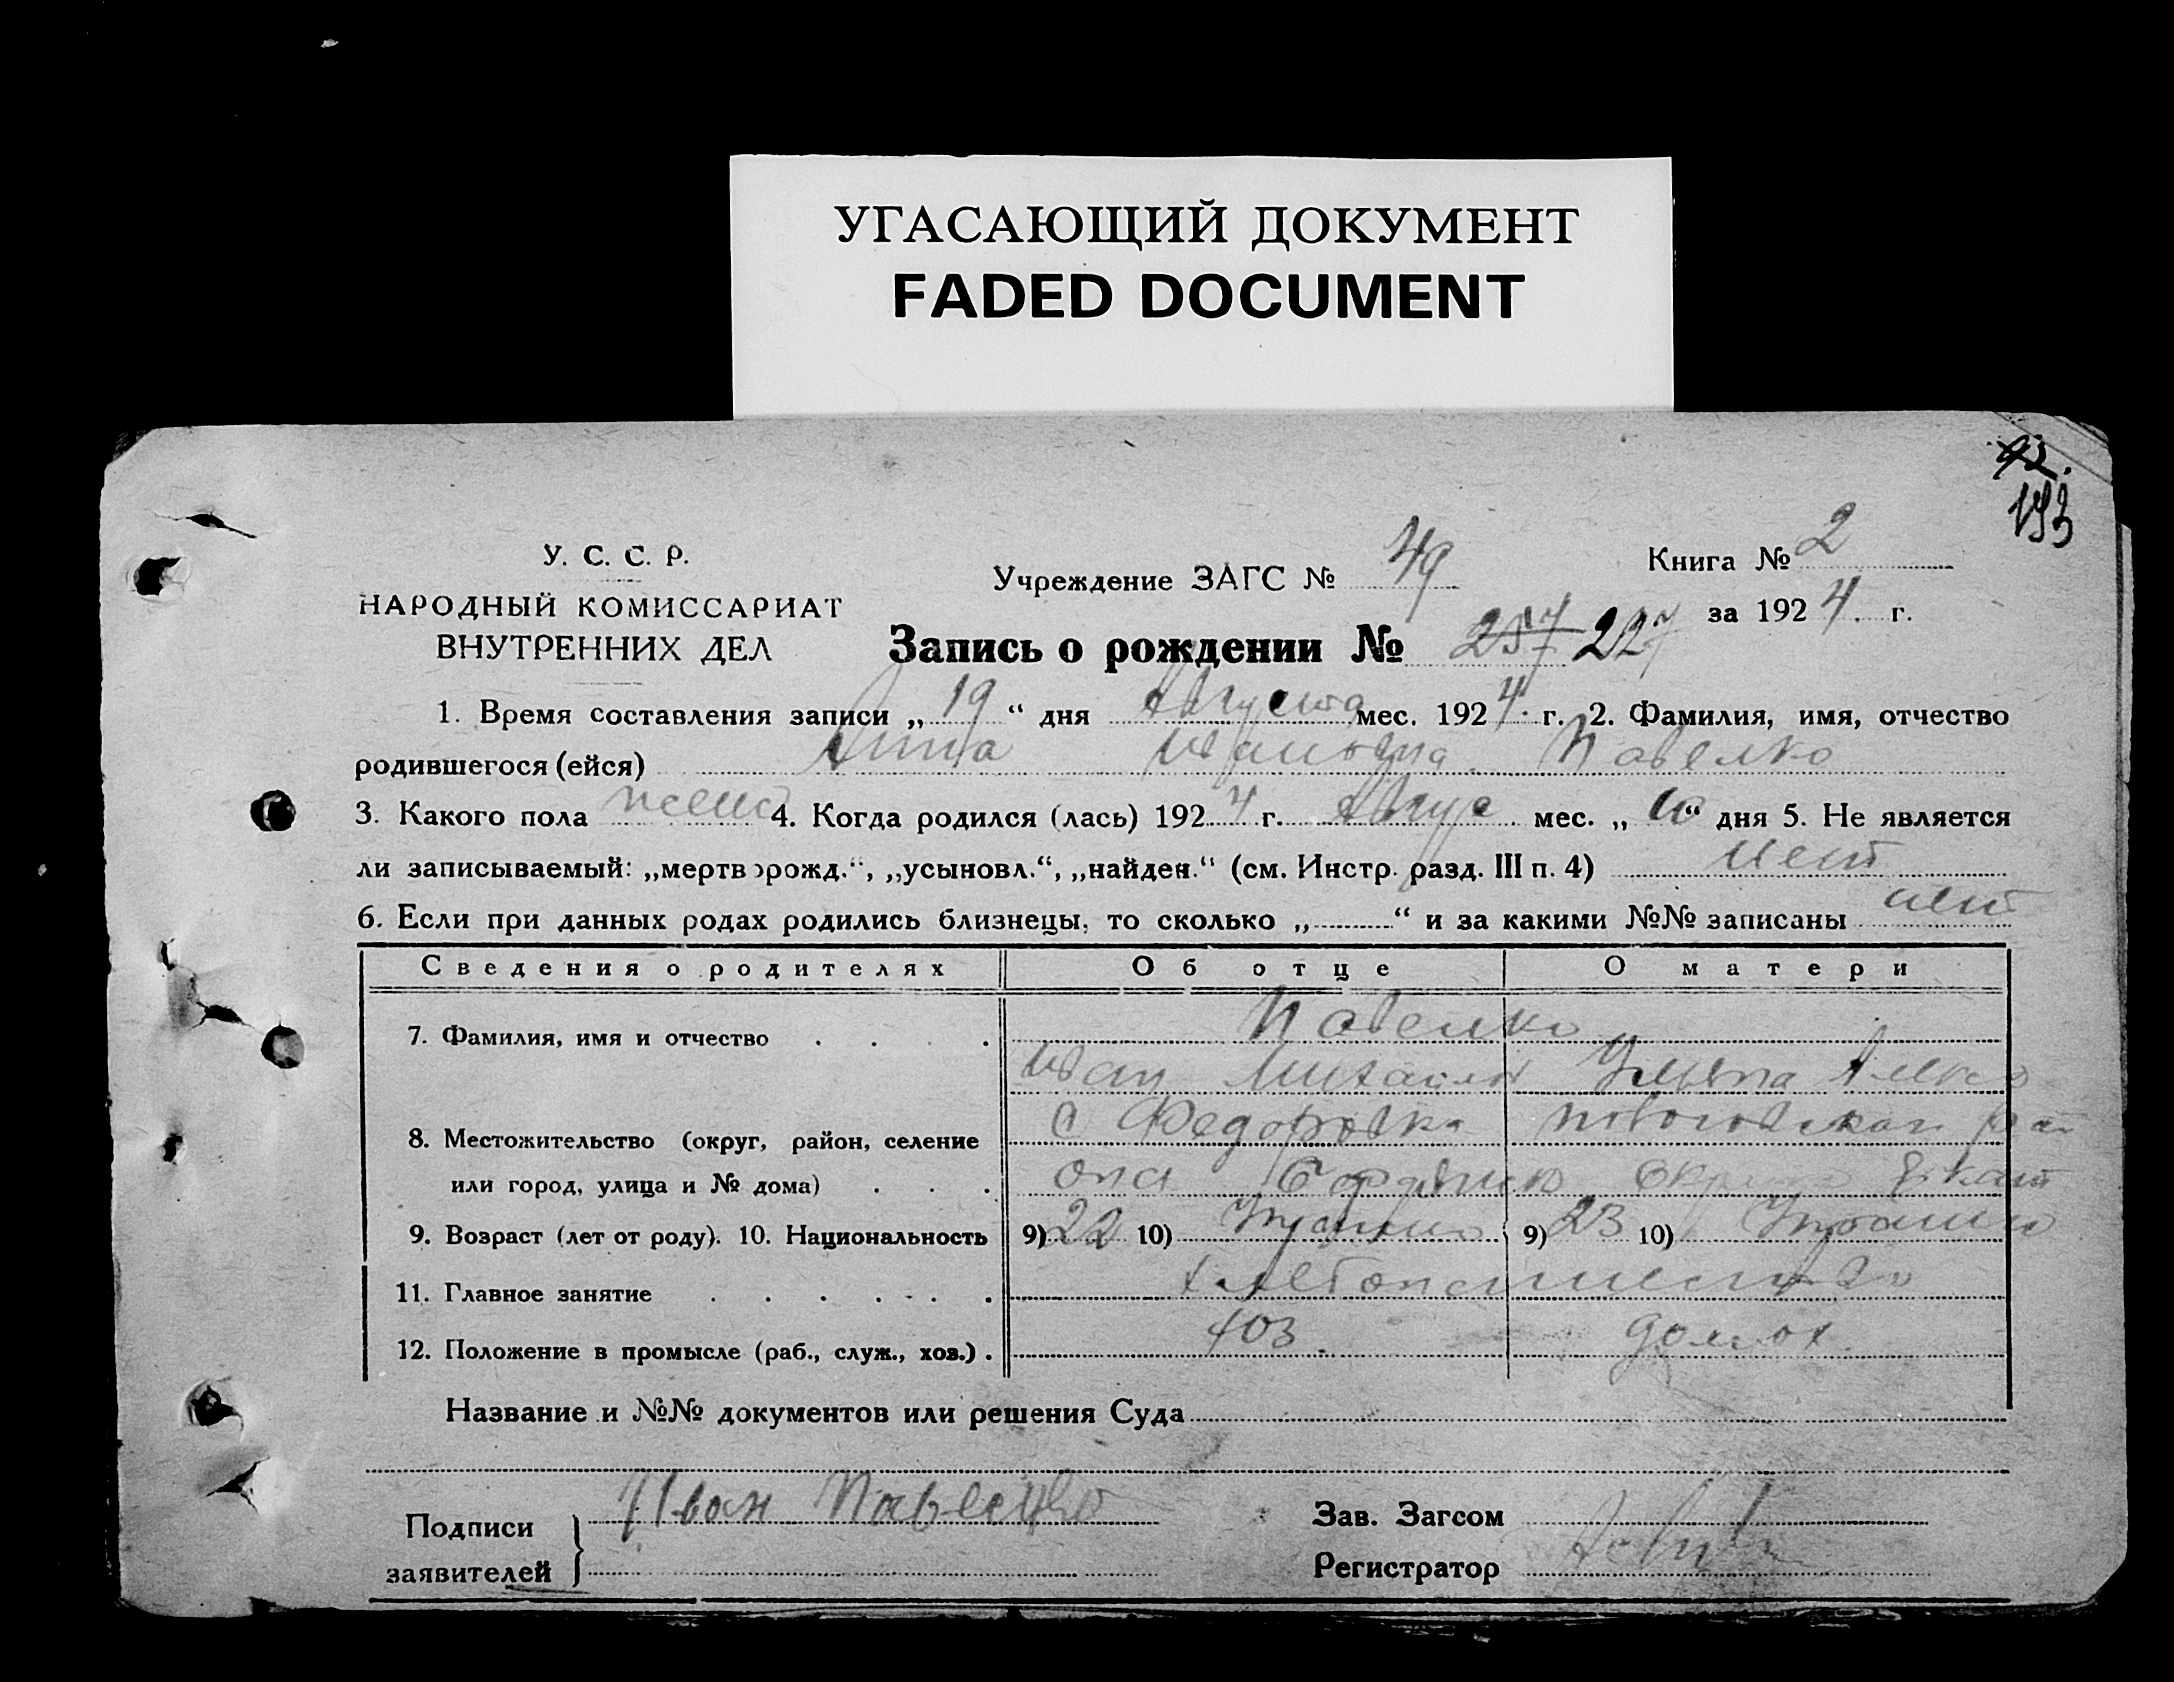 УГАСАЮЩИЙ ДОКУМЕНТ
FADED DOCUMENT
193
У. С. С. Р.
НАРОДНЫЙ КОМИССАРИАТ
ВНУТРЕННИХ ДЕЛ
Учреждение ЗАГС № 49
Книга № 2
за 1924 г.
Запись о рождении № 257 227
1. Время составления записи „19“ дня Августа мес. 1924 г. 2. Фамилия, имя, отчество
родившегося (ейся) Анна Ивановна Павелко
3. Какого пола женс 4. Когда родился (лась) 1924 г. Авгус мес. „10“ дня 5. Не является
ли записываемый: „мертворожд.“, „усыновл.“, „найден.“ (см. Инстр. разд. III п. 4) нет
6. Если при данных родах родились близнецы, то сколько „.........“ и за какими №№ записаны нет
Сведения о родителях Об отце О матери
7. Фамилия, имя и отчество Павелко
Иван Михайлов Ульяна Алексе
8. Местожительство (округ, район, селение с Федоровка
или город, улица и № дома) она
9. Возраст (лет от роду). 10. Национальность 9) 22 10) Украин 9) 23 10) Украин
11. Главное занятие хлебопашество
12. Положение в промысле (раб., служ., хоз.) хоз. домох.
Название и №№ документов или решения Суда
Подписи
заявителей
Иван Павелко
Зав. Загсом
Регистратор